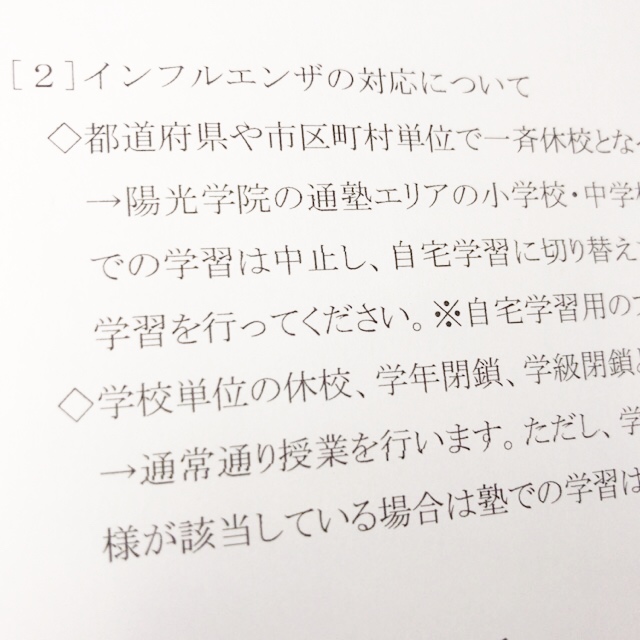 ［２］インフルエンザの対応について
◇都道府県や市区町村単位で一斉休校とな
→陽光学院の通塾エリアの小学校・中学
での学習は中止し、自宅学習に切り替え
学習を行ってください。※自宅学習用の
◇学校単位の休校、学年閉鎖、学級閉鎖
→通常通り授業を行います。ただし、学
様が該当している場合は塾での学習は